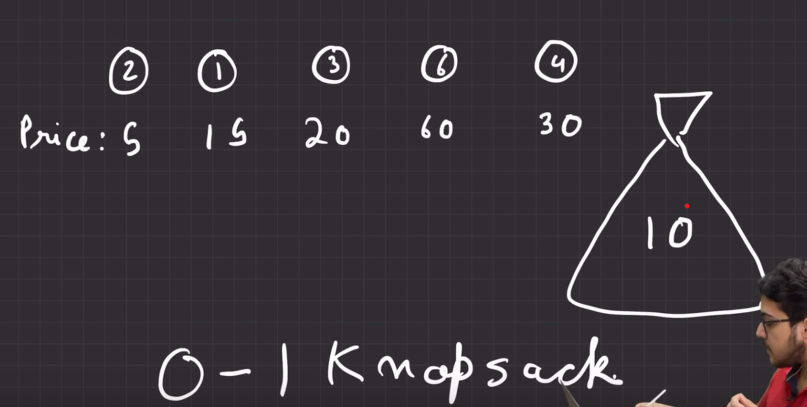 2 1 3 6 4
Price: 5 15 20 60 30
10
0-1 Knapsack